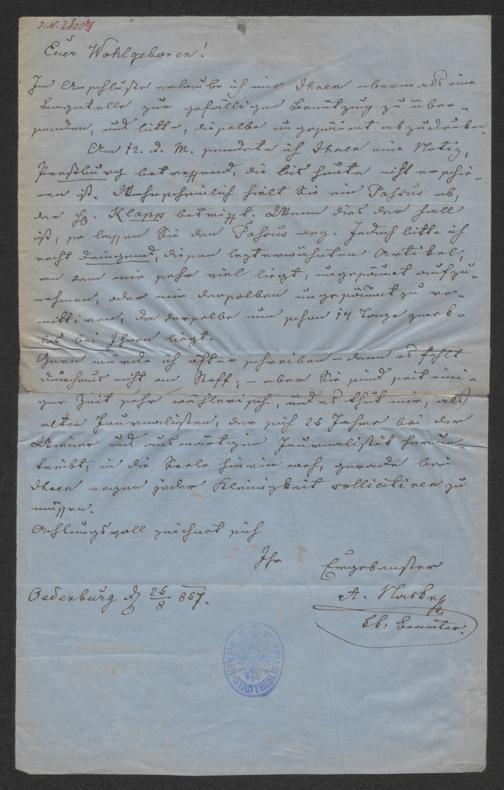 I.N. 28009
Euer Wohlgeboren!
Im Anschlusse erlaube ich mir Ihnen abermals eine
Bagatelle zur gefälligen Benützung zu über-
senden, und bitte, dieselbe ungesäumt abzudrucken.
Am 12. d. M. sendete ich Ihnen eine Notiz,
Preßburg betreffend, die bis heute nicht erschie-
nen ist. Wahrscheinlich hält Sie ein Passus ab,
der Hr. Klapp betrifft. Wenn dies der Fall
ist, so lassen Sie den Passus weg. Jedoch bitte ich
recht dringend, diesen letzterwähnten Artikel,
an dem mir sehr viel liegt, ungesäumt aufzu-
nehmen, oder mir denselben ungesäumt zu re-
mittiren, da derselbe nun schon 14 Tage
bei Ihnen liegt.
Gern würde ich öfter schreiben – denn es fehlt
durchaus nicht an Stoff; – aber Sie sind seit eini-
ger Zeit sehr wählerisch, und es thut mir, als
alten Journalisten, der sich 25 Jahre bei der
Wiener und auswärtigen Journalistik herum-
treibt, in die Seele hinein weh, gerade bei
Ihnen wegen jeder Kleinigkeit sollicitiren zu
müssen.
Achtungsvoll zeichnet sich
Ihr Ergebenster
Oedenburg 25/8 857.
A.
Beamter.
WIENER STADTBIBLIOTHEK